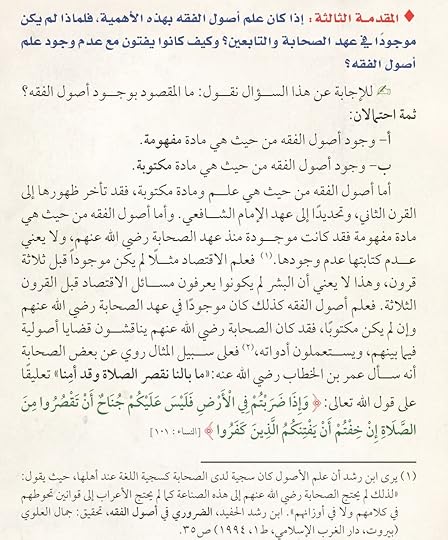 ♦ المقدمة الثالثة: إذا كان علم أصول الفقه بهذه الأهمية، فلماذا لم يكن
موجودًا في عهد الصحابة والتابعين؟ وكيف كانوا يفتون مع عدم وجود علم
أصول الفقه؟
للإجابة عن هذا السؤال نقول: ما المقصود بوجود أصول الفقه؟
ثمة احتمالان:
أ- وجود أصول الفقه من حيث هي مادة مفهومة.
ب- وجود أصول الفقه من حيث هي مادة مكتوبة.
أما أصول الفقه من حيث هي علم ومادة مكتوبة، فقد تأخر ظهورها إلى
القرن الثاني، وتحديدًا إلى عهد الإمام الشافعي. وأما أصول الفقه من حيث هي
مادة مفهومة فقد كانت موجودة منذ عهد الصحابة رضي الله عنهم، ولا يعني
عدم كتابتها عدم وجودها.(١) فعلم الاقتصاد مثلًا لم يكن موجودًا قبل ثلاثة
قرون، وهذا لا يعني أن البشر لم يكونوا يعرفون مسائل الاقتصاد قبل القرون
الثلاثة. فعلم أصول الفقه كذلك كان موجودًا في عهد الصحابة رضي الله عنهم
وإن لم يكن مكتوبًا، فقد كان الصحابة رضي الله عنهم يناقشون قضايا أصولية
فيما بينهم، ويستعملون أدواته،(٢) فعلى سبيل المثال روي عن بعض الصحابة
أنه سأل عمر بن الخطاب رضي الله عنه: «ما بالنا نقصر الصلاة وقد أمنا» تعليقًا
على قول الله تعالى: ﴿ وَإِذَا ضَرَبْتُمْ فِي الْأَرْضِ فَلَيْسَ عَلَيْكُمْ جُنَاحٌ أَنْ تَقْصُرُوا مِنَ
الصَّلَاةِ إِنْ خِفْتُمْ أَنْ يَفْتِنَكُمُ الَّذِينَ كَفَرُوا ﴾ [النساء: ١٠١]
(١) يرى ابن رشد أن علم الأصول كان سجية لدى الصحابة كسجية اللغة عند أهلها، حيث يقول:
«لذلك لم يحتج الصحابة رضي الله عنهم إلى هذه الصناعة كما لم يحتج الأعراب إلى قوانين تحوطهم
في كلامهم ولا في أوزانهم». ابن رشد الحفيد، الضروري في أصول الفقه، تحقيق: جمال العلوي
(بيروت، دار الغرب الإسلامي، ط١، ١٩٩٤) ص٣٥.